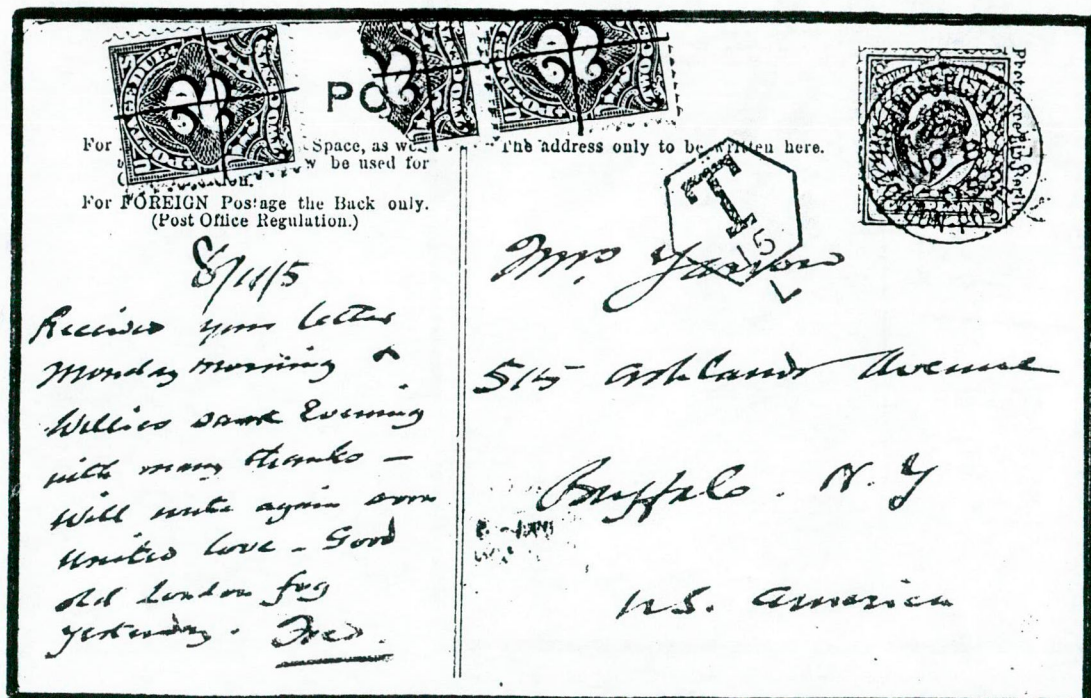 POSTAGE DUE
POSTAGE DUE
PO
For Space, as we
be used for
For FOREIGN Postage the Back only.
(Post Office Regulation.)
The address only to be written here.
T
15
L
NO 8
8/11/5
Received your letter
Monday morning &
Willies same Evening
with many thanks –
Will write again soon
United love – Good
old London fog
yesterday. Fred.
Mrs
515 Ashland Avenue
Buffalo. N. Y
U.S. America